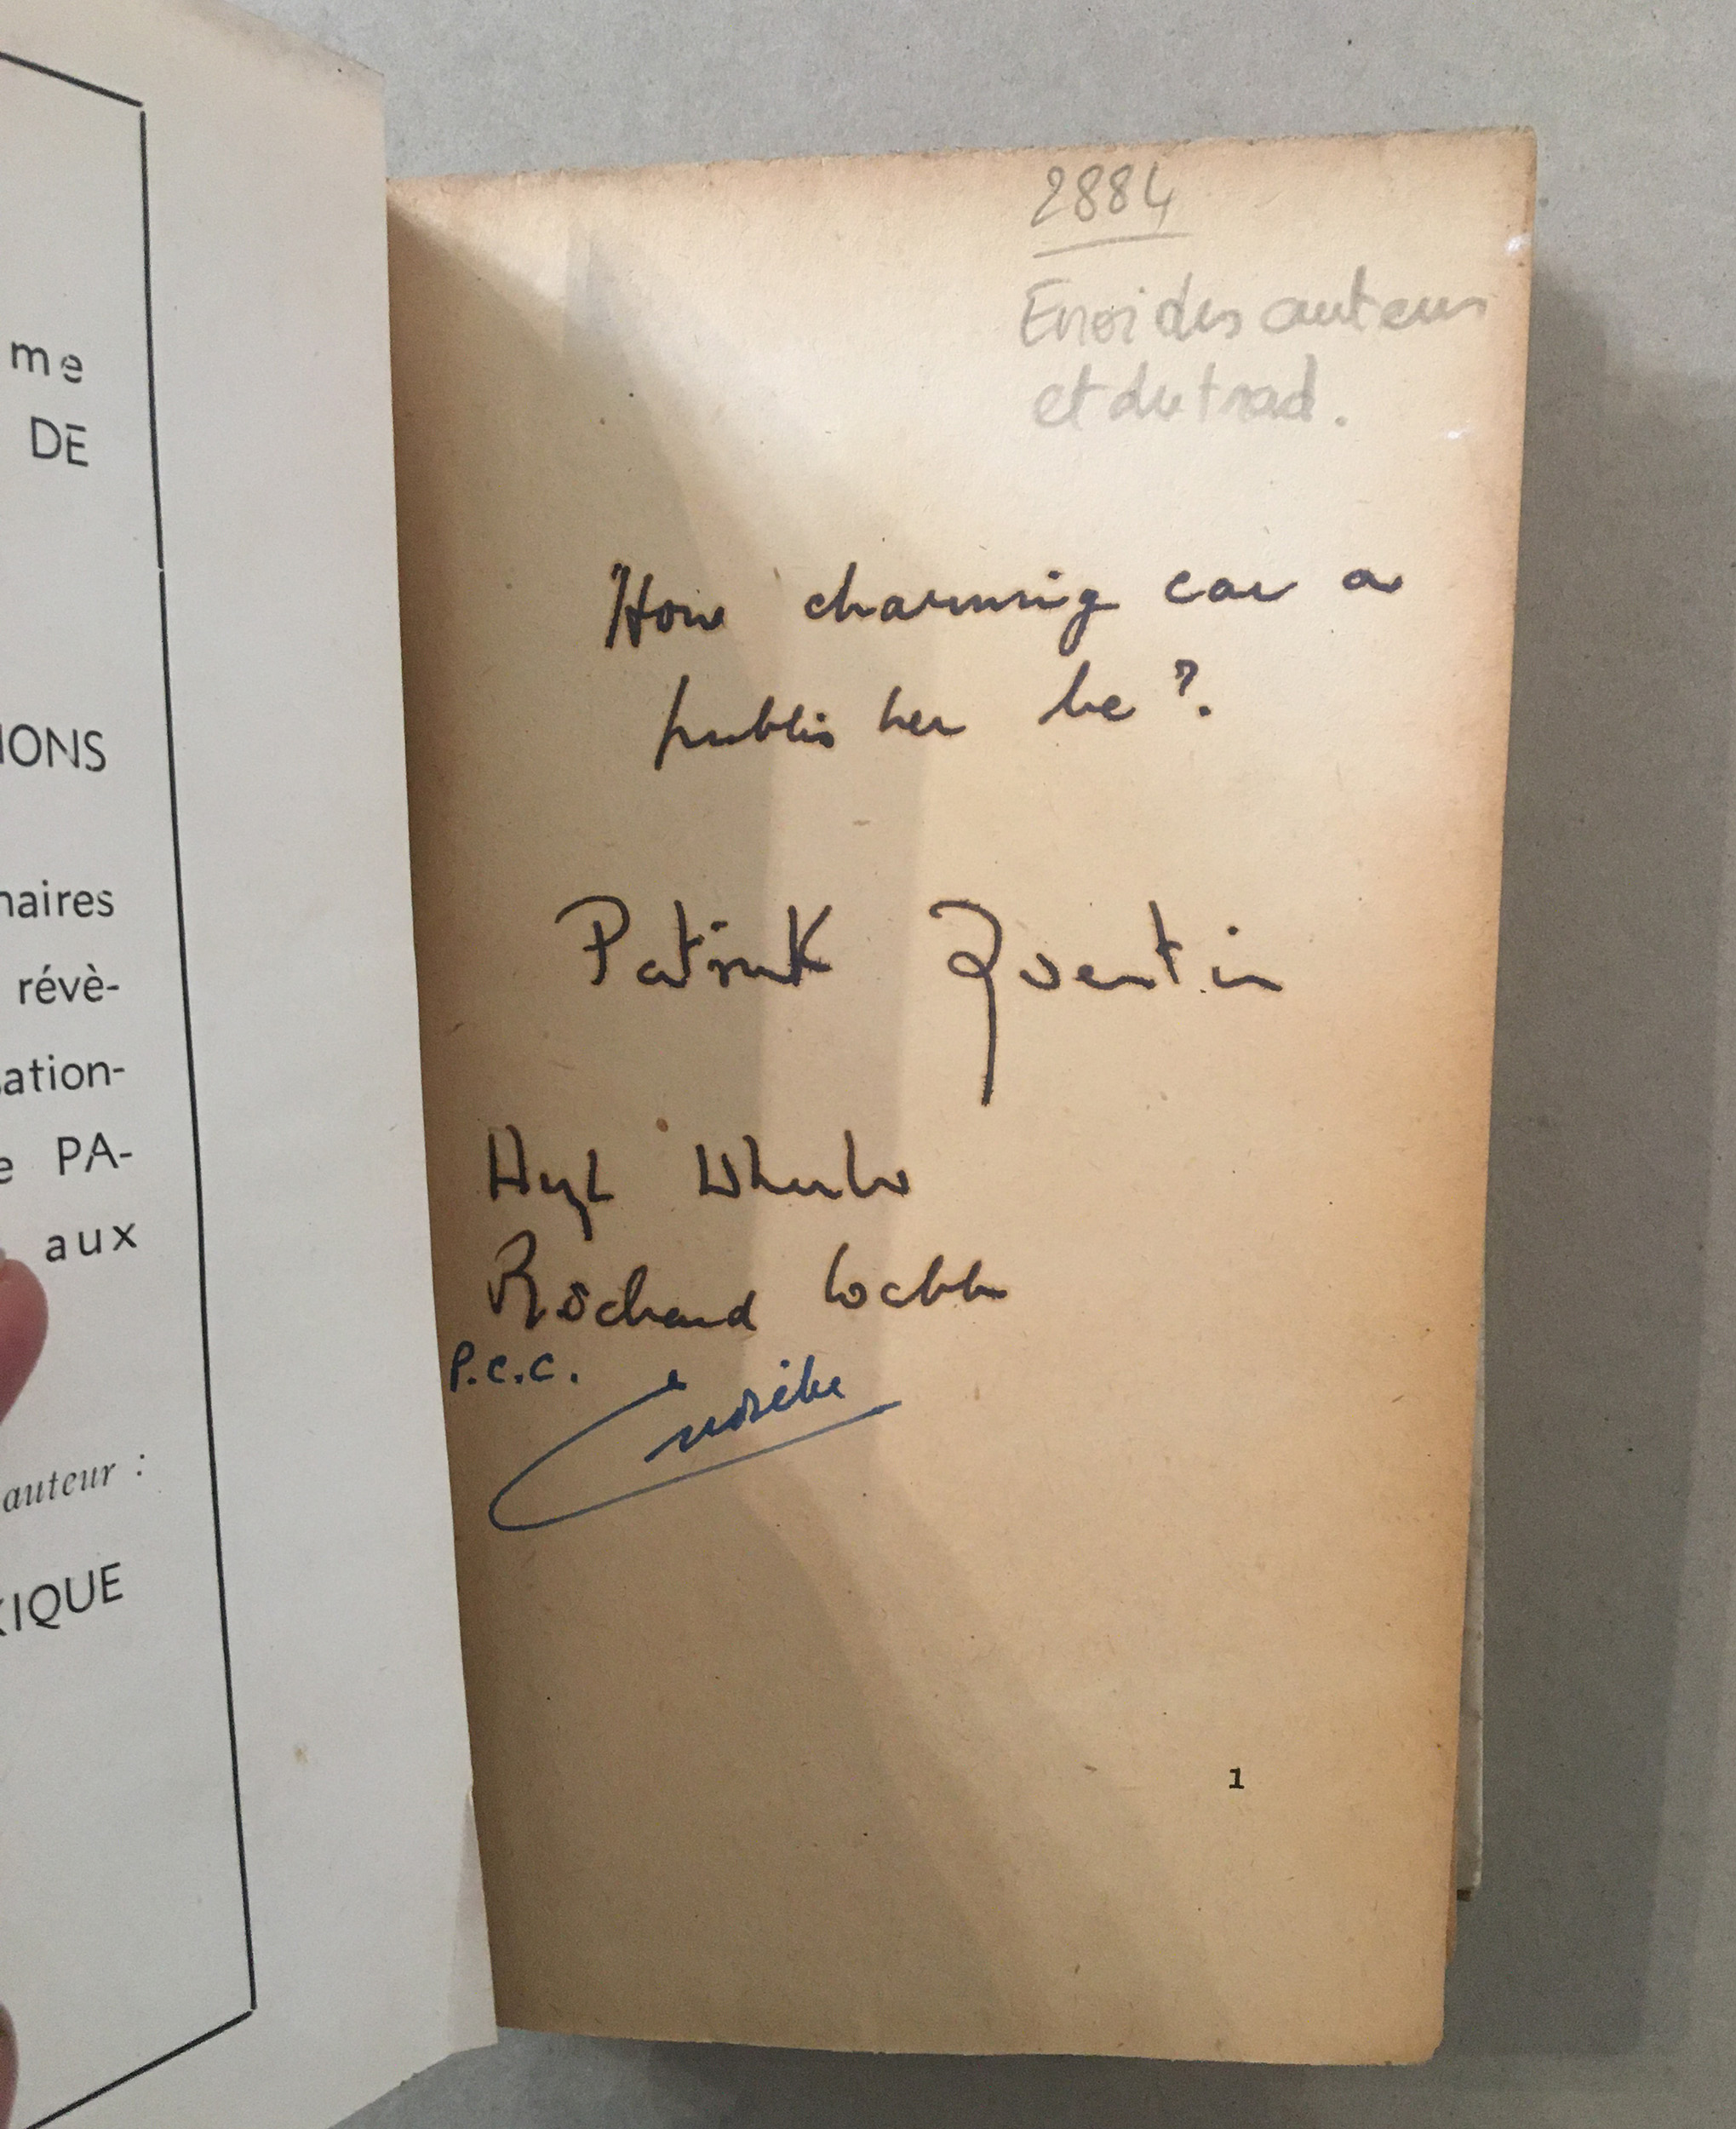 me
DE
IONS
naires
révè-
sation-
e PA-
aux
auteur :
XIQUE
2884
Envoi des auteurs
et du trad.
How charming can a
publisher be ?.
Patrick Quentin
Hugh Wheeler
Richard Webb
P.C.C.
1